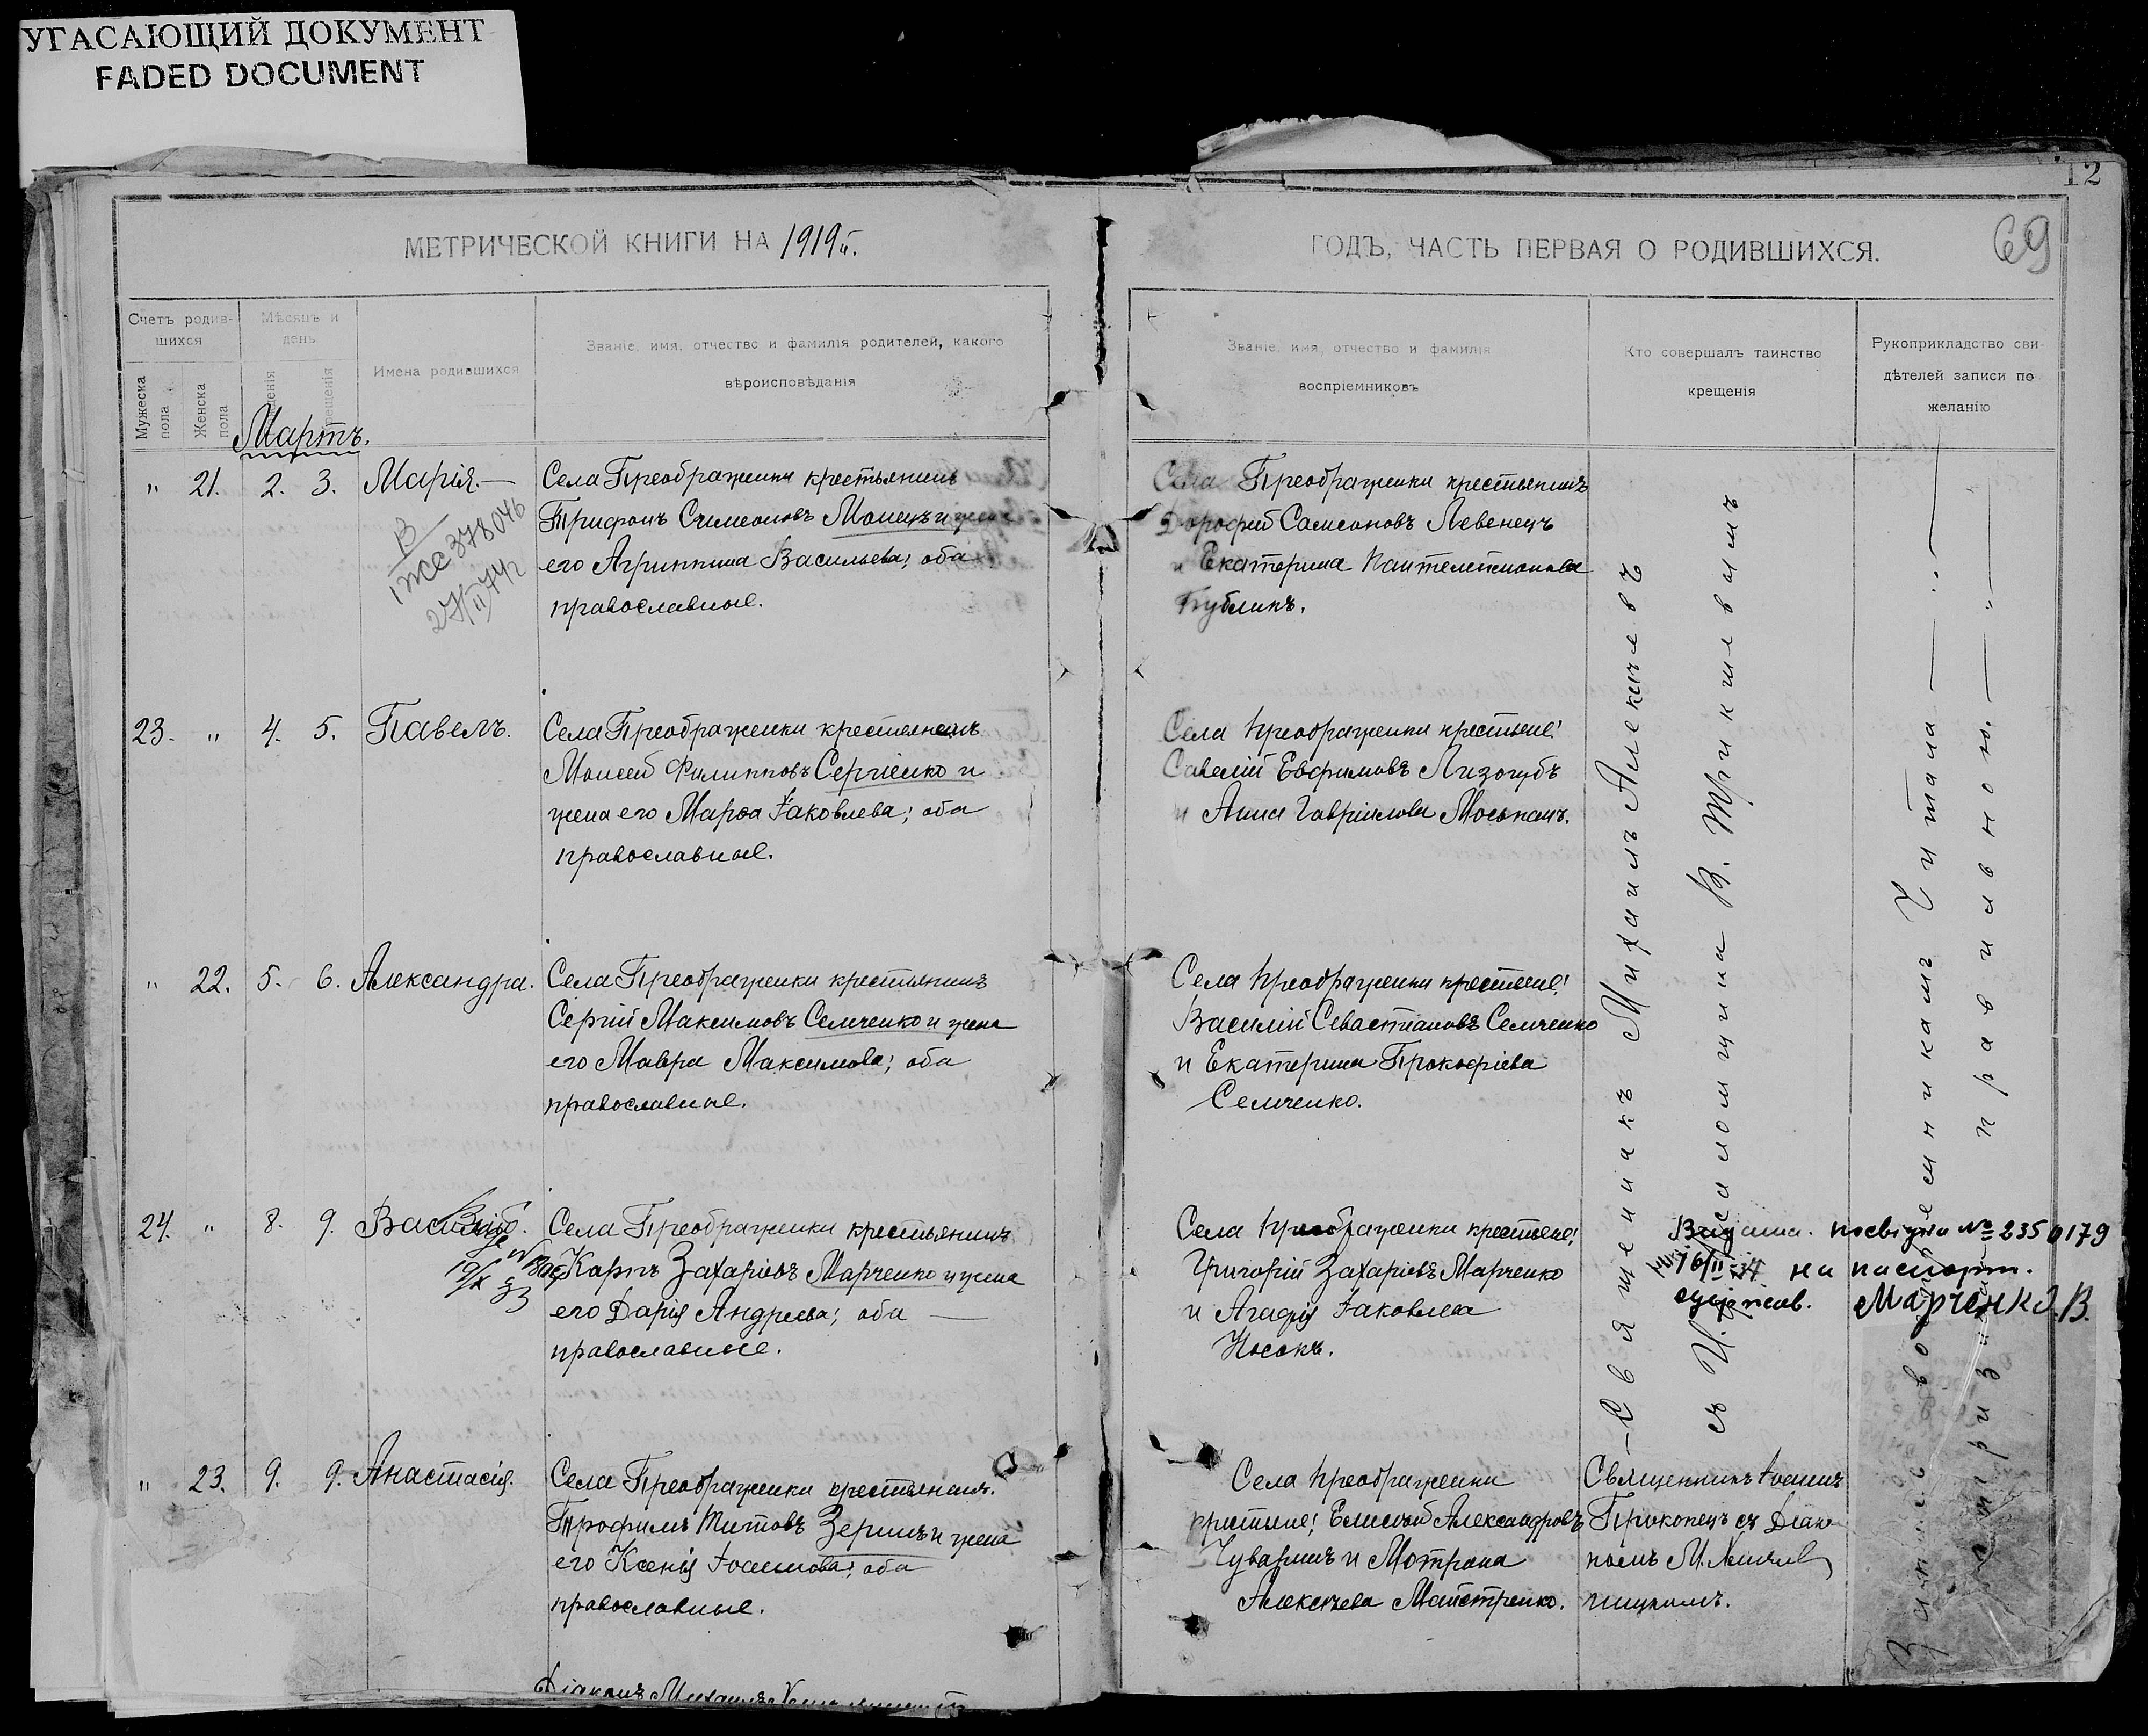 УГАСАЮЩИЙ ДОКУМЕНТ
FADED DOCUMENT
12
69
МЕТРИЧЕСКОЙ КНИГИ НА 1919й.
Счетъ родив-
шихся
Мѣсяцъ и
день
Мужеска
пола
Женска
пола
Имена родившихся
Званіе, имя, отчество и фамилія родителей, какого
вѣроисповѣданія
Мартъ.
" 21. 2. 3. Марія.—
Села Преображенки крестьянинъ
Трифонъ Симеоновъ Монецъ и жена
его Агриппина Васильева; оба
православные.
В
378046
27/II 74г
23. " 4. 5. Павелъ.
Села Преображенки крестьянинъ
Моисей Филипповъ Сергіенко и
жена его Марѳа Іаковлева; оба
православные.
" 22. 5. 6. Александра.
Села Преображенки крестьянинъ
Сергій Максимовъ Семченко и жена
его Мавра Максимова; оба
православные.
24. " 8. 9. Василій.
Села Преображенки крестьянинъ
Карпъ Захаріевъ Марченко и жена
его Дарія Андреева; оба —
православные.
" 23. 9. 9. Анастасія.
Села Преображенки крестьянинъ.
Трофимъ Титовъ Зеринъ и жена
его Ксенія Іоаннова; оба
православные.
Діаконъ Михаилъ
ГОДЪ, ЧАСТЬ ПЕРВАЯ О РОДИВШИХСЯ.
Званіе, имя, отчество и фамилія
воспріемниковъ
Кто совершалъ таинство
крещенія
Рукоприкладство сви-
дѣтелей записи по
желанію
Села Преображенки крестьянинъ
Дорофей Самсоновъ Левенецъ
и Екатерина Пантелеимонова
Бубликъ.
Села Преображенки крестьяне:
Савелій Евфимовъ Лизогубъ
и Анна Гавріилова Моспанъ.
Села Преображенки крестьяне:
Василій Севастіановъ Семченко
и Екатерина Прокофіева
Семченко.
Села Преображенки крестьяне:
Григорій Захаріевъ Марченко
и Агафія Іаковлева
Носокъ.
Села Преображенки
крестьяне: Елисей Александровъ
Чуваринъ и Мотрона
Алексѣева Майстренко.
Священникъ Михаилъ Алексѣевъ
съ И. Псаломщика В. Трикилевымъ
Видана. посвідка № 2350179
16/II 34 на паспорт.
Марченко.В.
Священникъ Іоаннъ
Прокопецъ съ Діако
номъ М.
ницкимъ.
воспріемникамъ Читана — " —
правильною. — " —